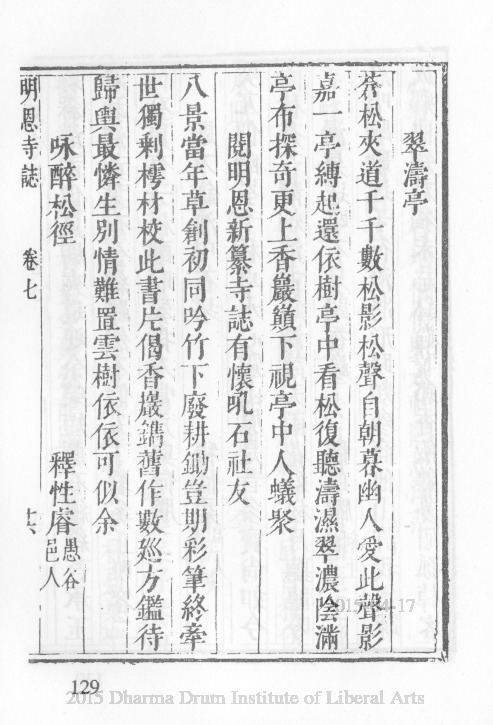 翠濤亭
蒼松夾道千千數松影松聲自朝暮幽人愛此聲影
嘉一亭縛起還依樹亭中看松復聽濤濕翠濃陰滿
亭布探奇更上香巖巔下視亭中人蟻聚
閱明恩新纂寺誌有懷吼石社友
八景當年草創初同吟竹下廢耕鋤豈期彩筆終牽
世獨剩樗材校此書片偈香巖鐫舊作數廵方鑑待
歸與最憐生別情難置雲樹依依可似余
咏醉松徑 釋性睿愚谷邑人
明恩寺誌 卷七 十六
129
2015-04-17
2015 Dharma Drum Institute of Liberal Arts